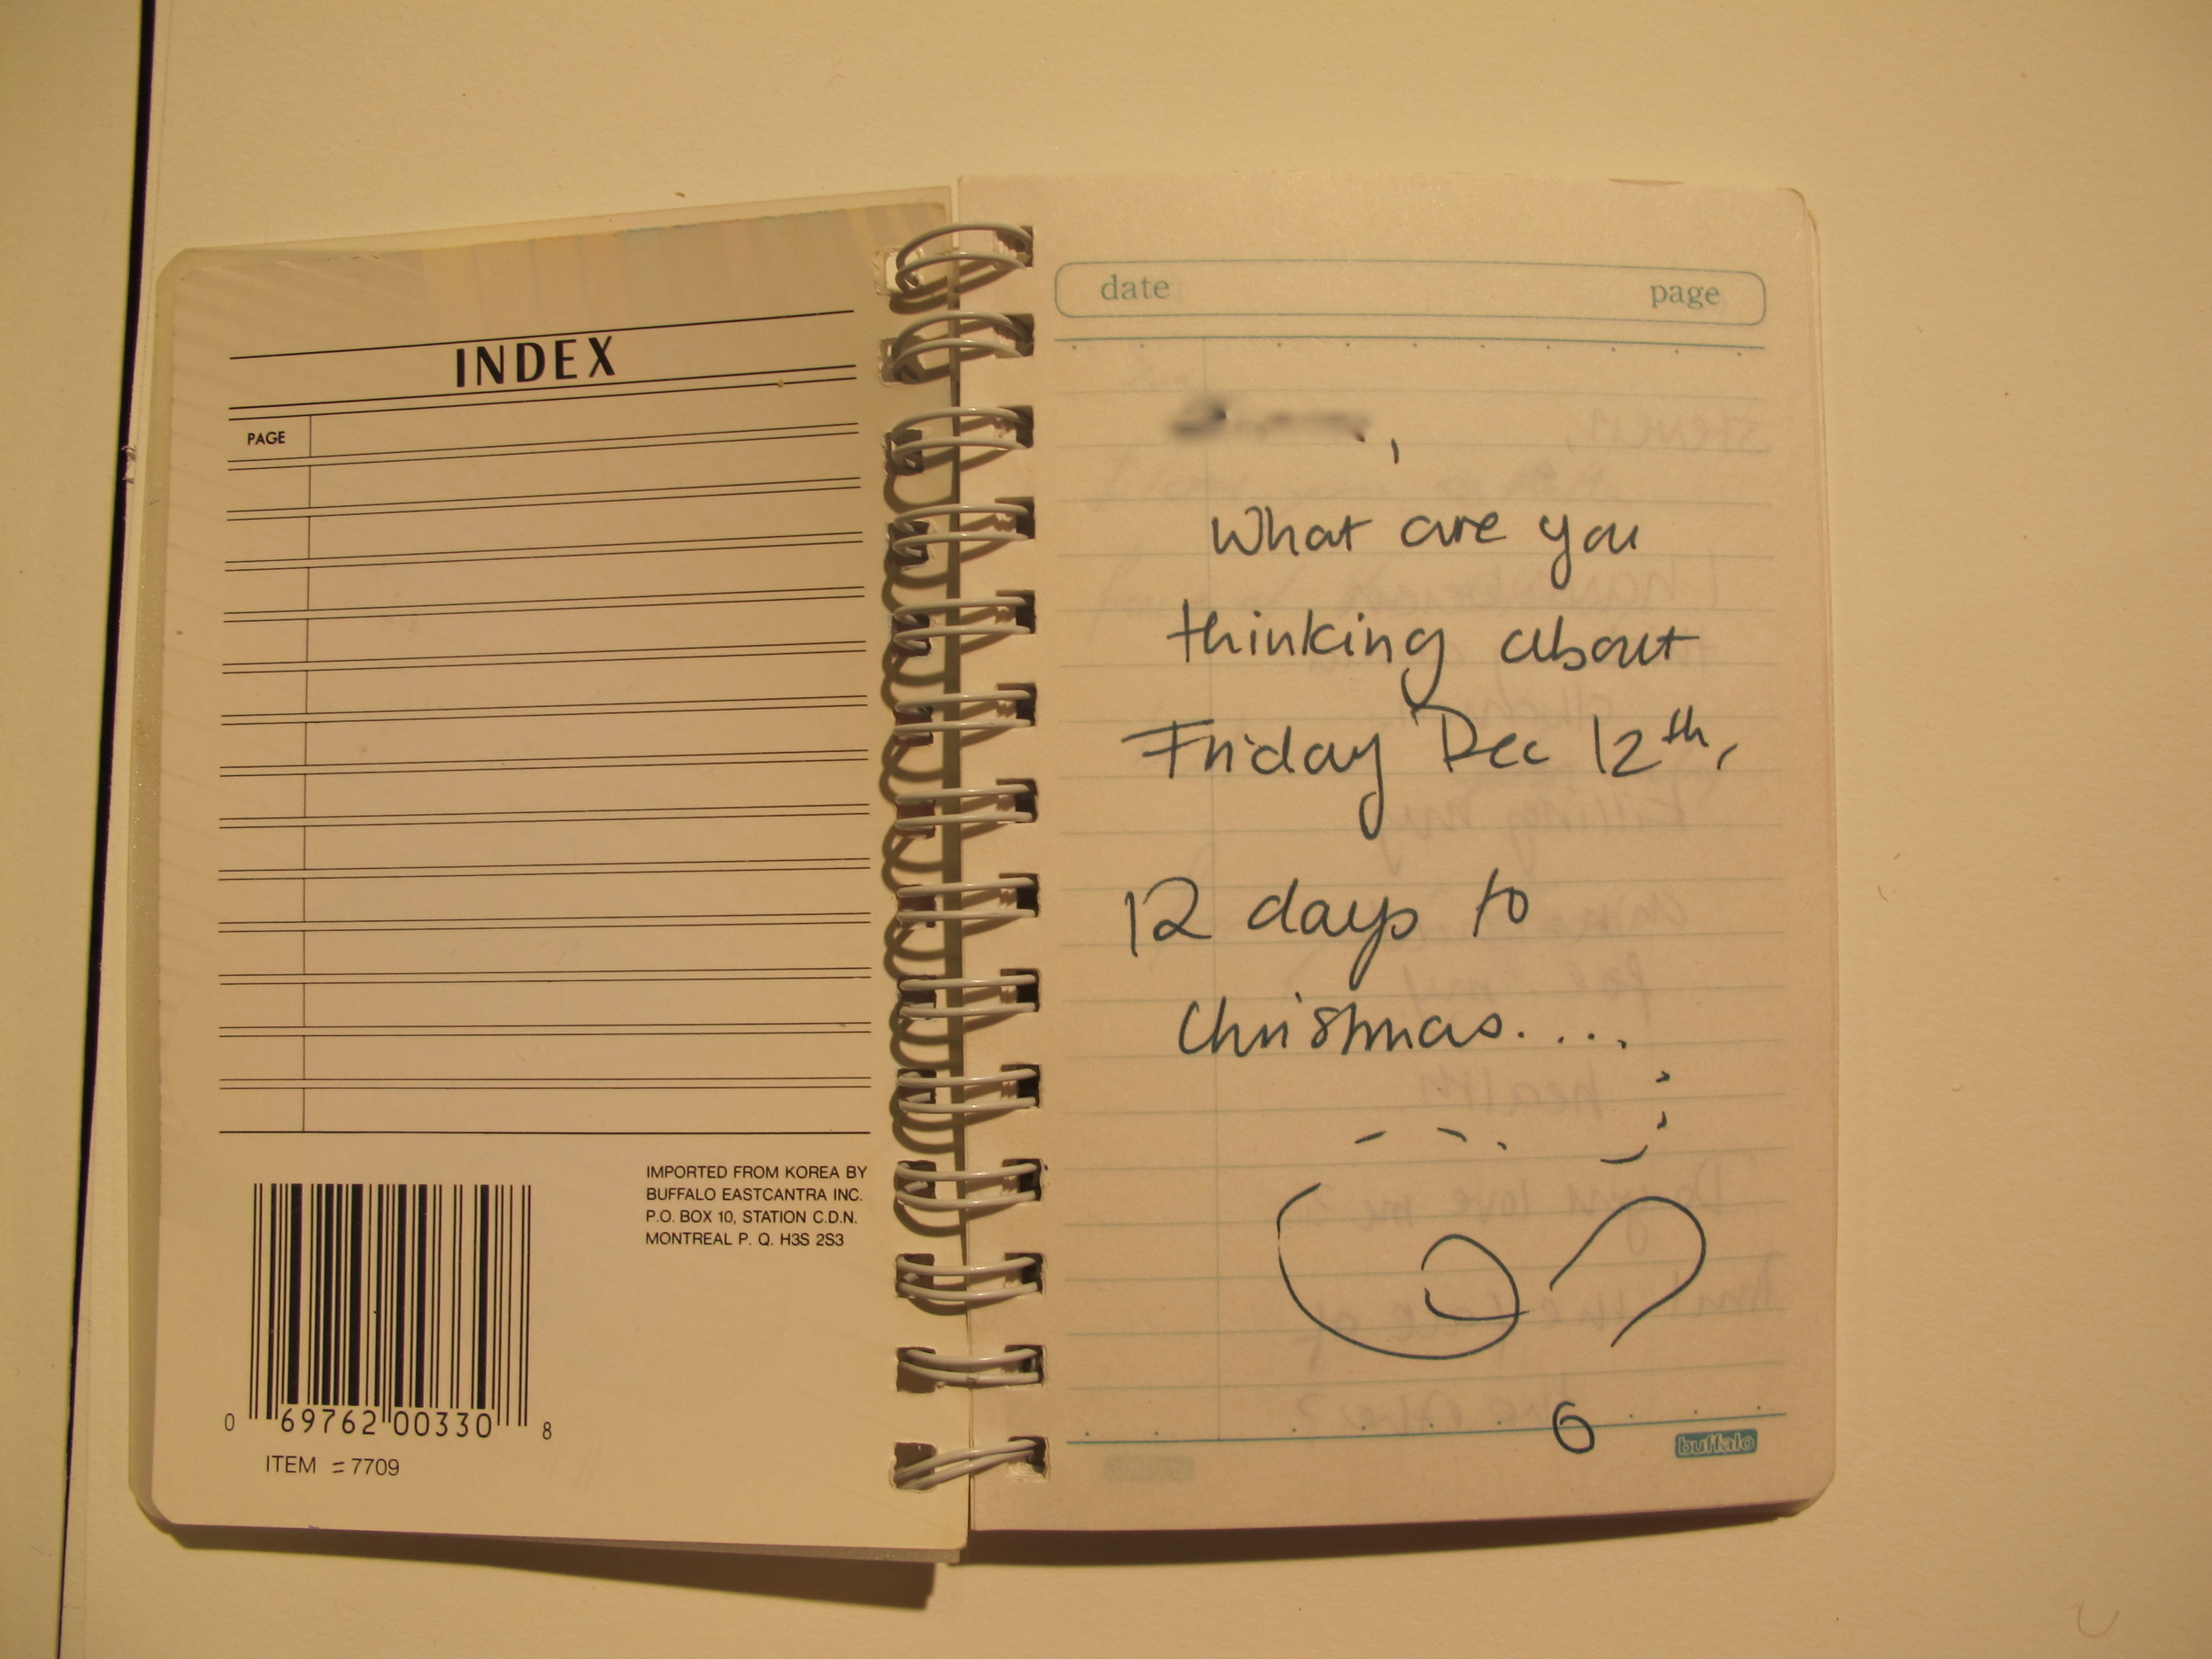 INDEX
PAGE
IMPORTED FROM KOREA BY
BUFFALO EASTCANTRA INC.
P.O. BOX 10, STATION C.D.N.
MONTREAL P. Q. H3S 2S3
0 69762 00330 8
ITEM = 7709
date page
,
What are you
thinking about
Friday Dec 12th,
12 days to
Christmas....
?
buffalo